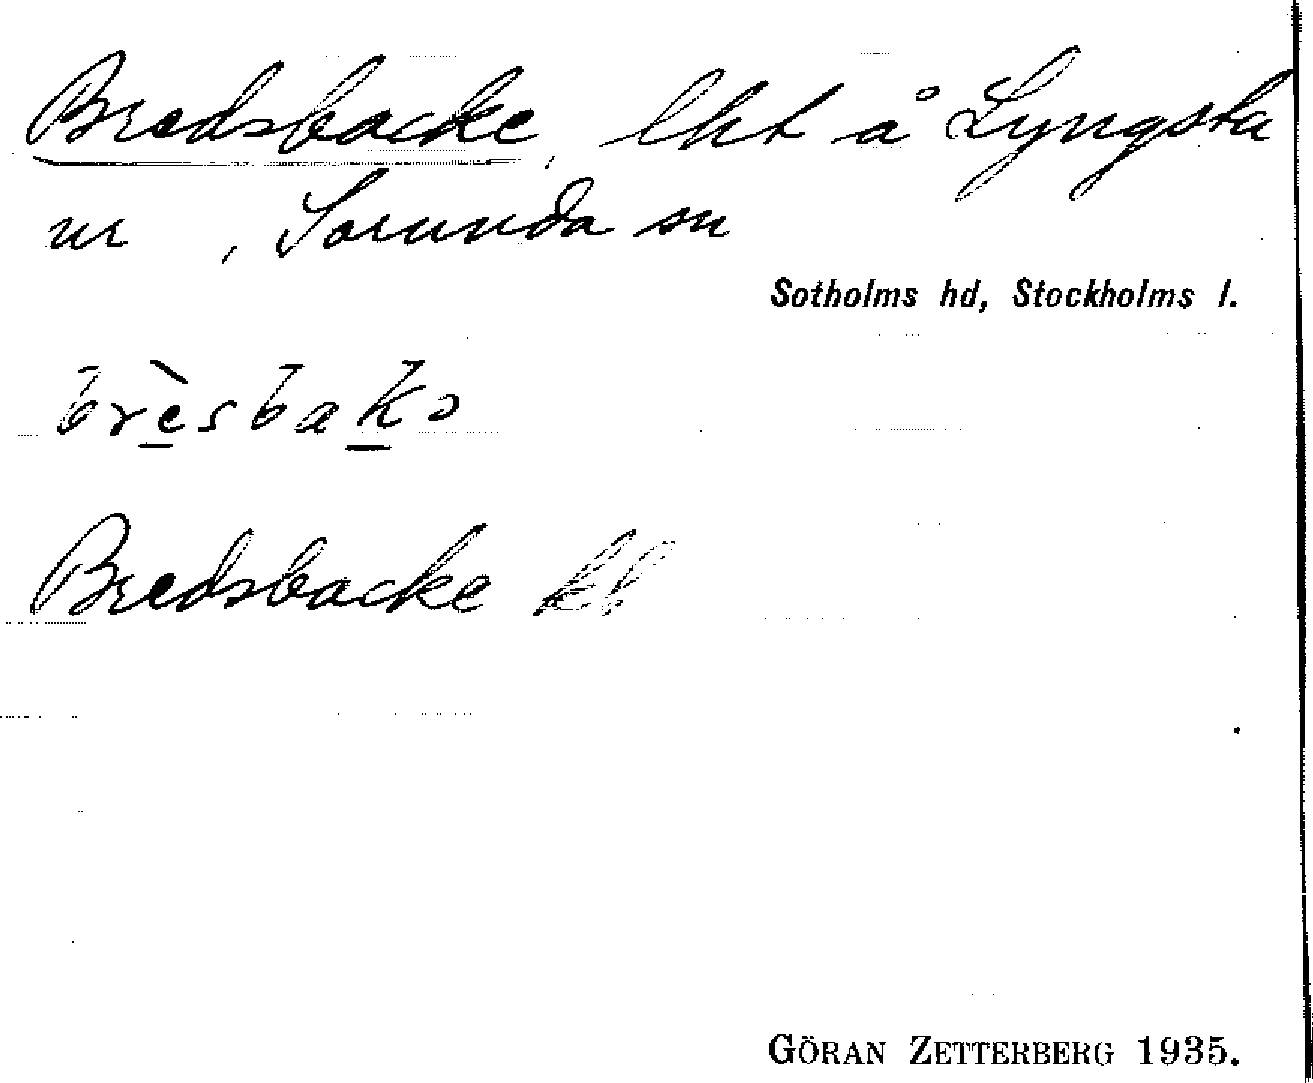 Bredsbacke, lht å Lyngsta
ur, Sorunda sn
Sotholms hd, Stockholms l.
brèsbakə
Bredsbacke kb
GÖRAN ZETTERBERG 1935.